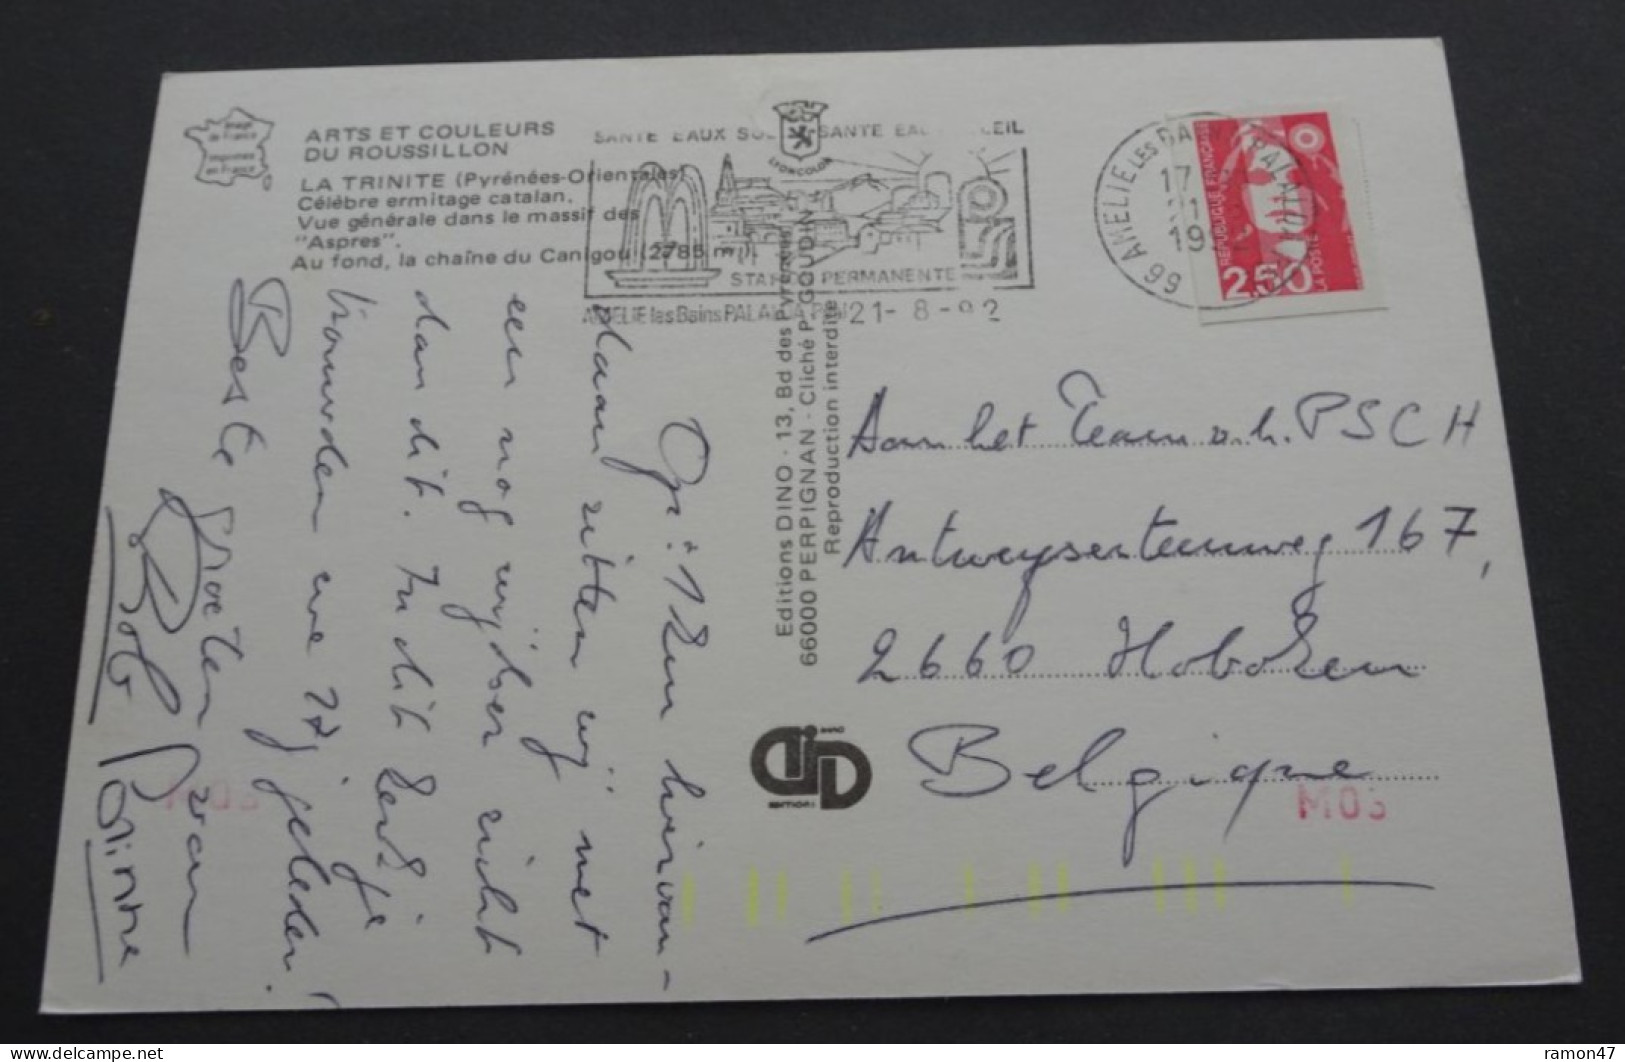 image
de France
imprimée
en France
ARTS ET COULEURS
DU ROUSSILLON
LA TRINITE (Pyrénées-Orientales)
Célèbre ermitage catalan.
Vue générale dans le massif des
"Aspres".
Au fond, la chaîne du Canigou (2785 m).
LYONCOLOR
STATION PERMANENTE
AMELIE les Bains PALALDA
21-8-92
66 AMELIE LES BAINS PALALDA
17
19
REPUBLIQUE FRANÇAISE
2,50
LA POSTE
Editions DINO - 13, Bd des Pyrénées
66000 PERPIGNAN - Cliché P. GOUDIN
Reproduction interdite
DINO
EDITIONS
Op ± 12 km hiervan-
daan zitten wij met
een nog wijder zicht
dan dit. In dit kerkje
trouwden we 27 j geleden!
Beste groeten van
Rob Corinne
Aan het Team v.h. PSCH
Antwerpsesteenweg 167,
2660 Hoboken
Belgique
M03
M03
ramon47